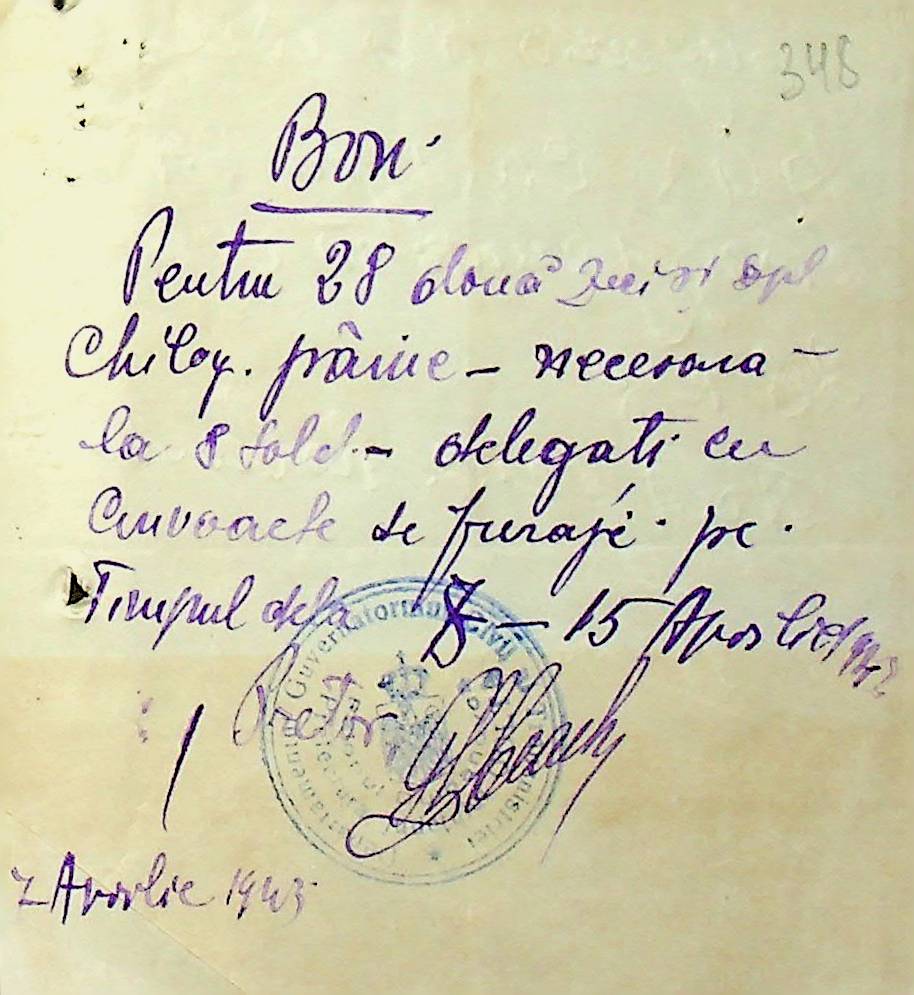 348
Bon.
Pentru 28 două zeci și opt
Chilogr. pâine – necesara –
la 8 sold. – delegati cu
Convoacele de furaje. pe.
Timpul dela 8 – 15 Aprilie 194
Pretor
Guvernatorul
7 Aprilie 1943